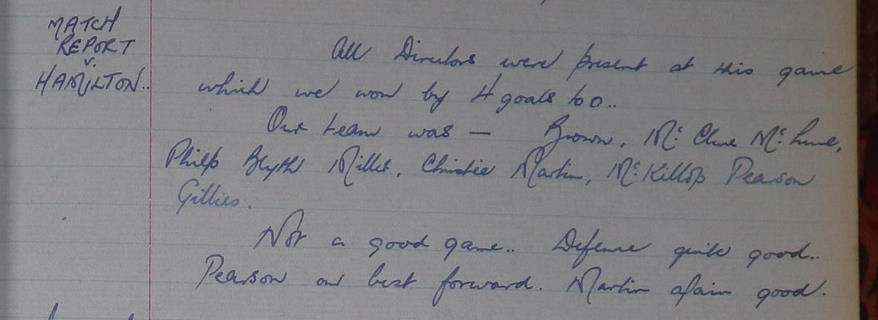 MATCH
REPORT
v.
HAMILTON..
All Directors were present at this game
which we won by 4 goals to 0..
Our team was — Brown, Mc Clure Mc
Philp Blyth Millar, Christie Martin, McKillop Pearson
Gillies.
Not a good game.. Defence quite good..
Pearson our best forward. Martin again good.